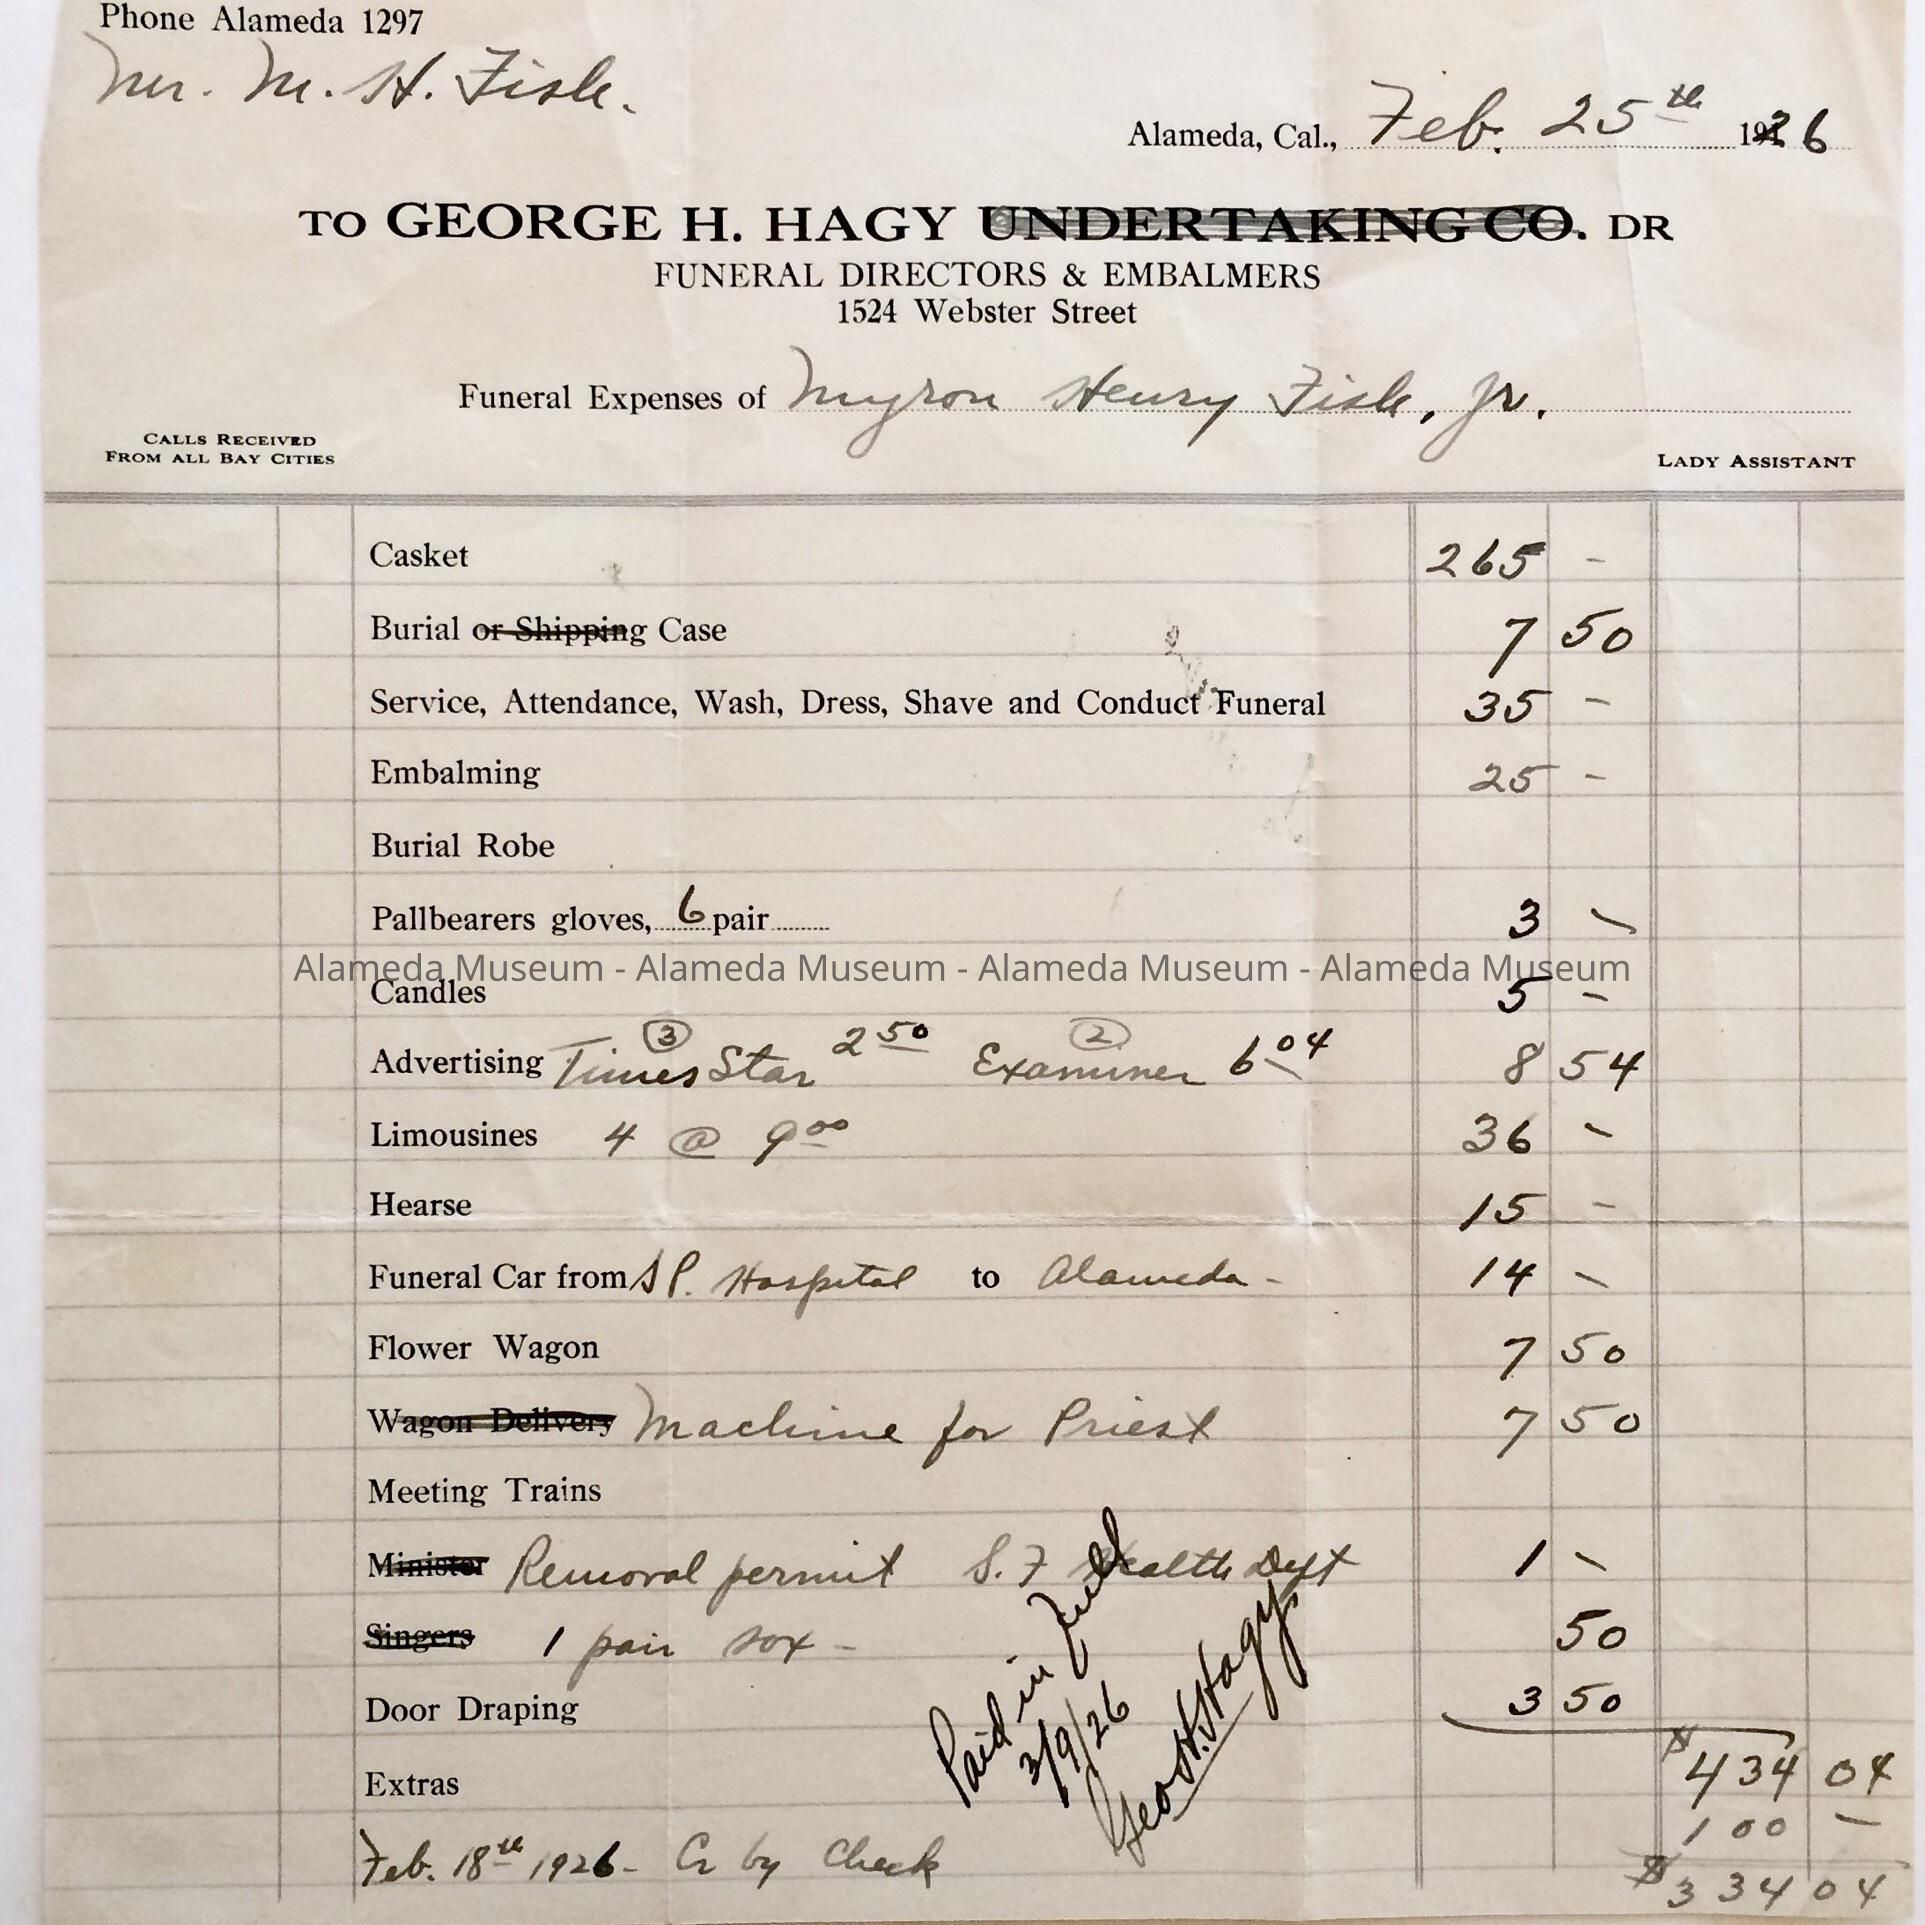 Phone Alameda 1297
Mr. M. H. Fisk.
Alameda, Cal., Feb. 25th 1926
TO GEORGE H. HAGY UNDERTAKING CO. DR
FUNERAL DIRECTORS & EMBALMERS
1524 Webster Street
Funeral Expenses of Myron Henry Fisk, Jr.
CALLS RECEIVED
FROM ALL BAY CITIES
LADY ASSISTANT
Casket 265 -
Burial or Shipping Case 7 50
Service, Attendance, Wash, Dress, Shave and Conduct Funeral 35 -
Embalming 25 -
Burial Robe
Pallbearers gloves, 6 pair 3 -
Alameda Museum - Alameda Museum - Alameda Museum - Alameda Museum
Candles 5 -
Advertising Times Star ③ 2 50 Examiner ② 6 04 8 54
Limousines 4 @ 9 00 36 -
Hearse 15 -
Funeral Car from S P. Hospital to Alameda - 14 -
Flower Wagon 7 50
Wagon Delivery Machine for Priest 7 50
Meeting Trains
Minister Removal permit S. F Health Dept 1 -
Singers 1 pair sox - 50
Door Draping 3 50
Paid in Full
3/9/26
Geo. H. Hagy
$434 04
Extras
100 -
Feb. 18th 1926 - Cr by Check
$334 04